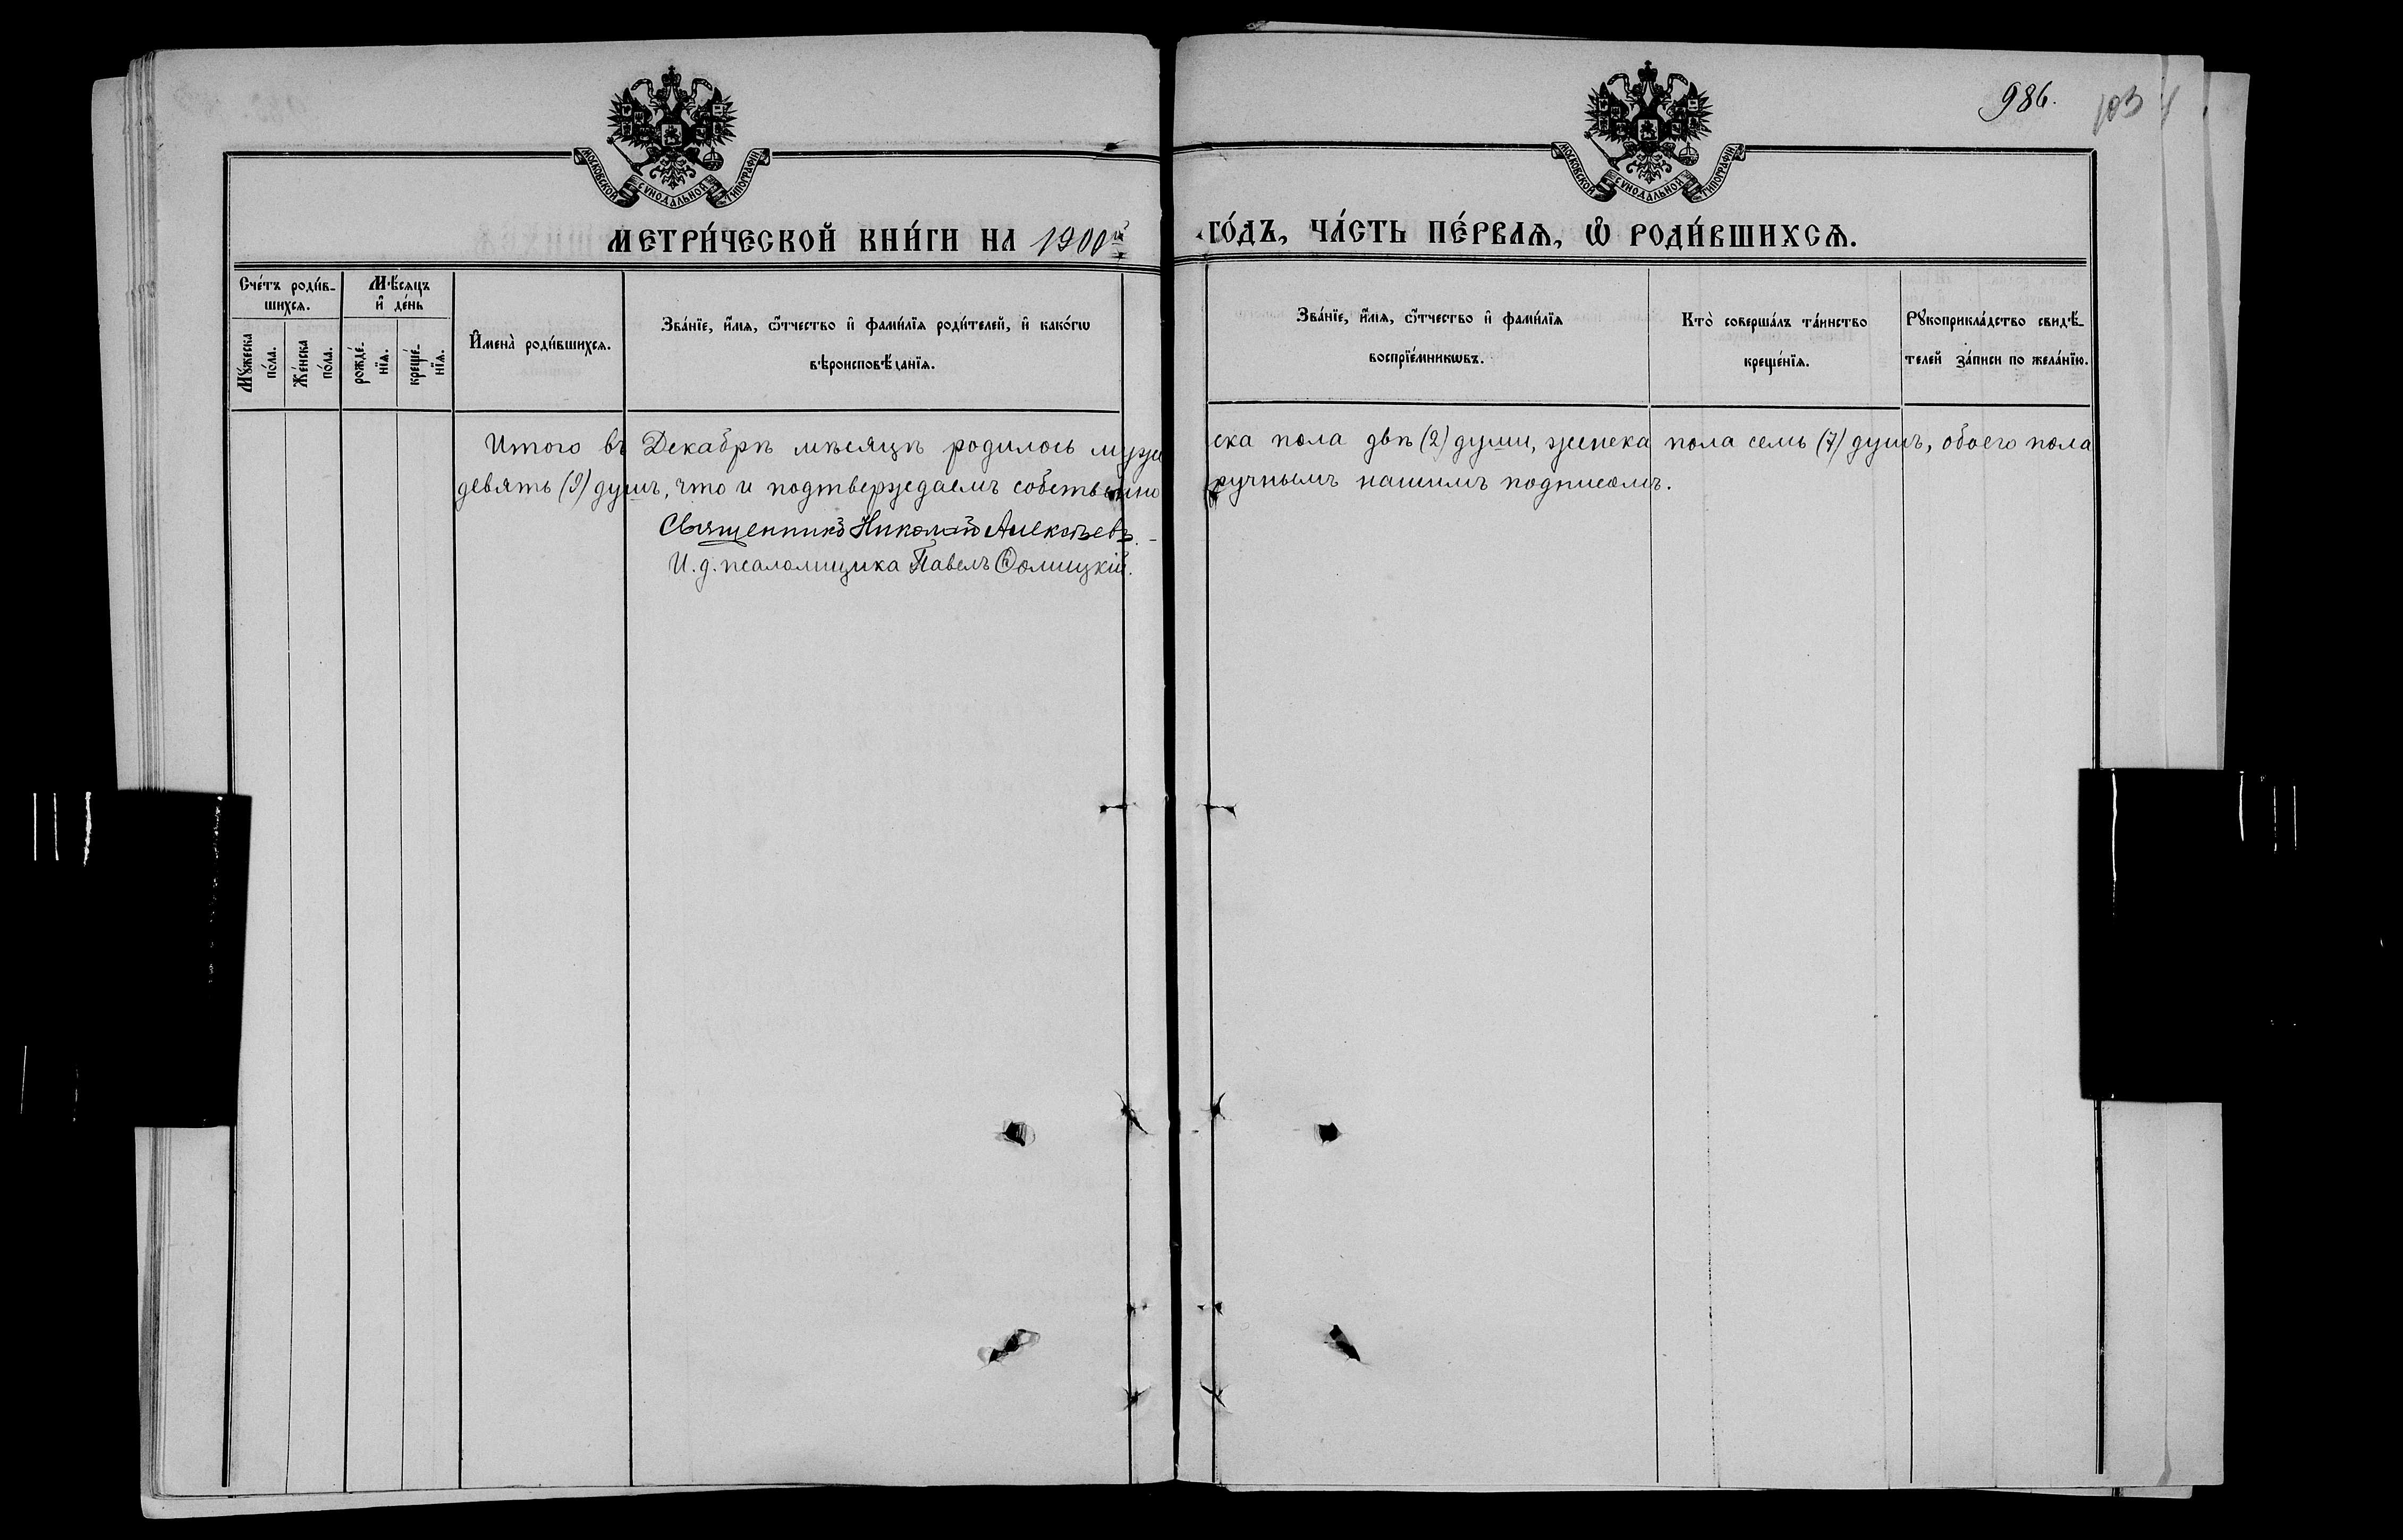 986.
103
МОСКОВСКОЙ СѴНОДАЛЬНОЙ ТИПОГРАФІИ
МОСКОВСКОЙ СѴНОДАЛЬНОЙ ТИПОГРАФІИ
МЕТРИ́ЧЕСКОЙ КНИ́ГИ НА 1900й ГО́ДЪ, ЧА́СТЬ ПЕ́РВАѦ, Ѡ҆ РОДИ́ВШИХСѦ.
Сче́тъ роди́в-
шихсѧ.
Мꙋ́жеска
по́ла.
Же́нска
по́ла.
Мѣ́сяцъ
и҆ де́нь
рожде́-
нїѧ.
креще́-
нїѧ.
И҆мена̀ роди́вшихсѧ.
Зва́нїе, и҆́мѧ, ѻ҆́тчество и҆ фами́лїѧ роди́телей, и҆ како́гѡ
вѣроисповѣ́данїѧ.
Зва́нїе, и҆́мѧ, ѻ҆́тчество и҆ фами́лїѧ
воспрїе́мникѡвъ.
Кто̀ соверша́лъ та́инство
креще́нїѧ.
Рꙋкоприкла́дство свидѣ́-
телей за́писи по жела́нїю.
Итого въ Декабрѣ мѣсяцѣ родилось мужеска пола двѣ (2) души, женска пола семь (7) душъ, обоего пола
девять (9) душъ, что и подтверждаемъ собственноручнымъ нашимъ подписомъ.
Священникъ Николай Алексѣевъ.
И. д. псаломщика Павелъ